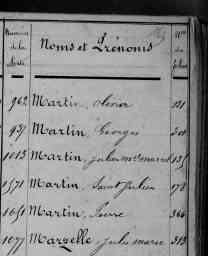 Numéros de la Liste Noms et Prénoms Nos des folios
962 Martin, Olivier 121
937 Martin, Georges 301
1013 Martin, Jules 135
1571 Martin, Saint Julien 178
1651 Martin, Pierre 366
1077 Marzelle, Jules Marie 313